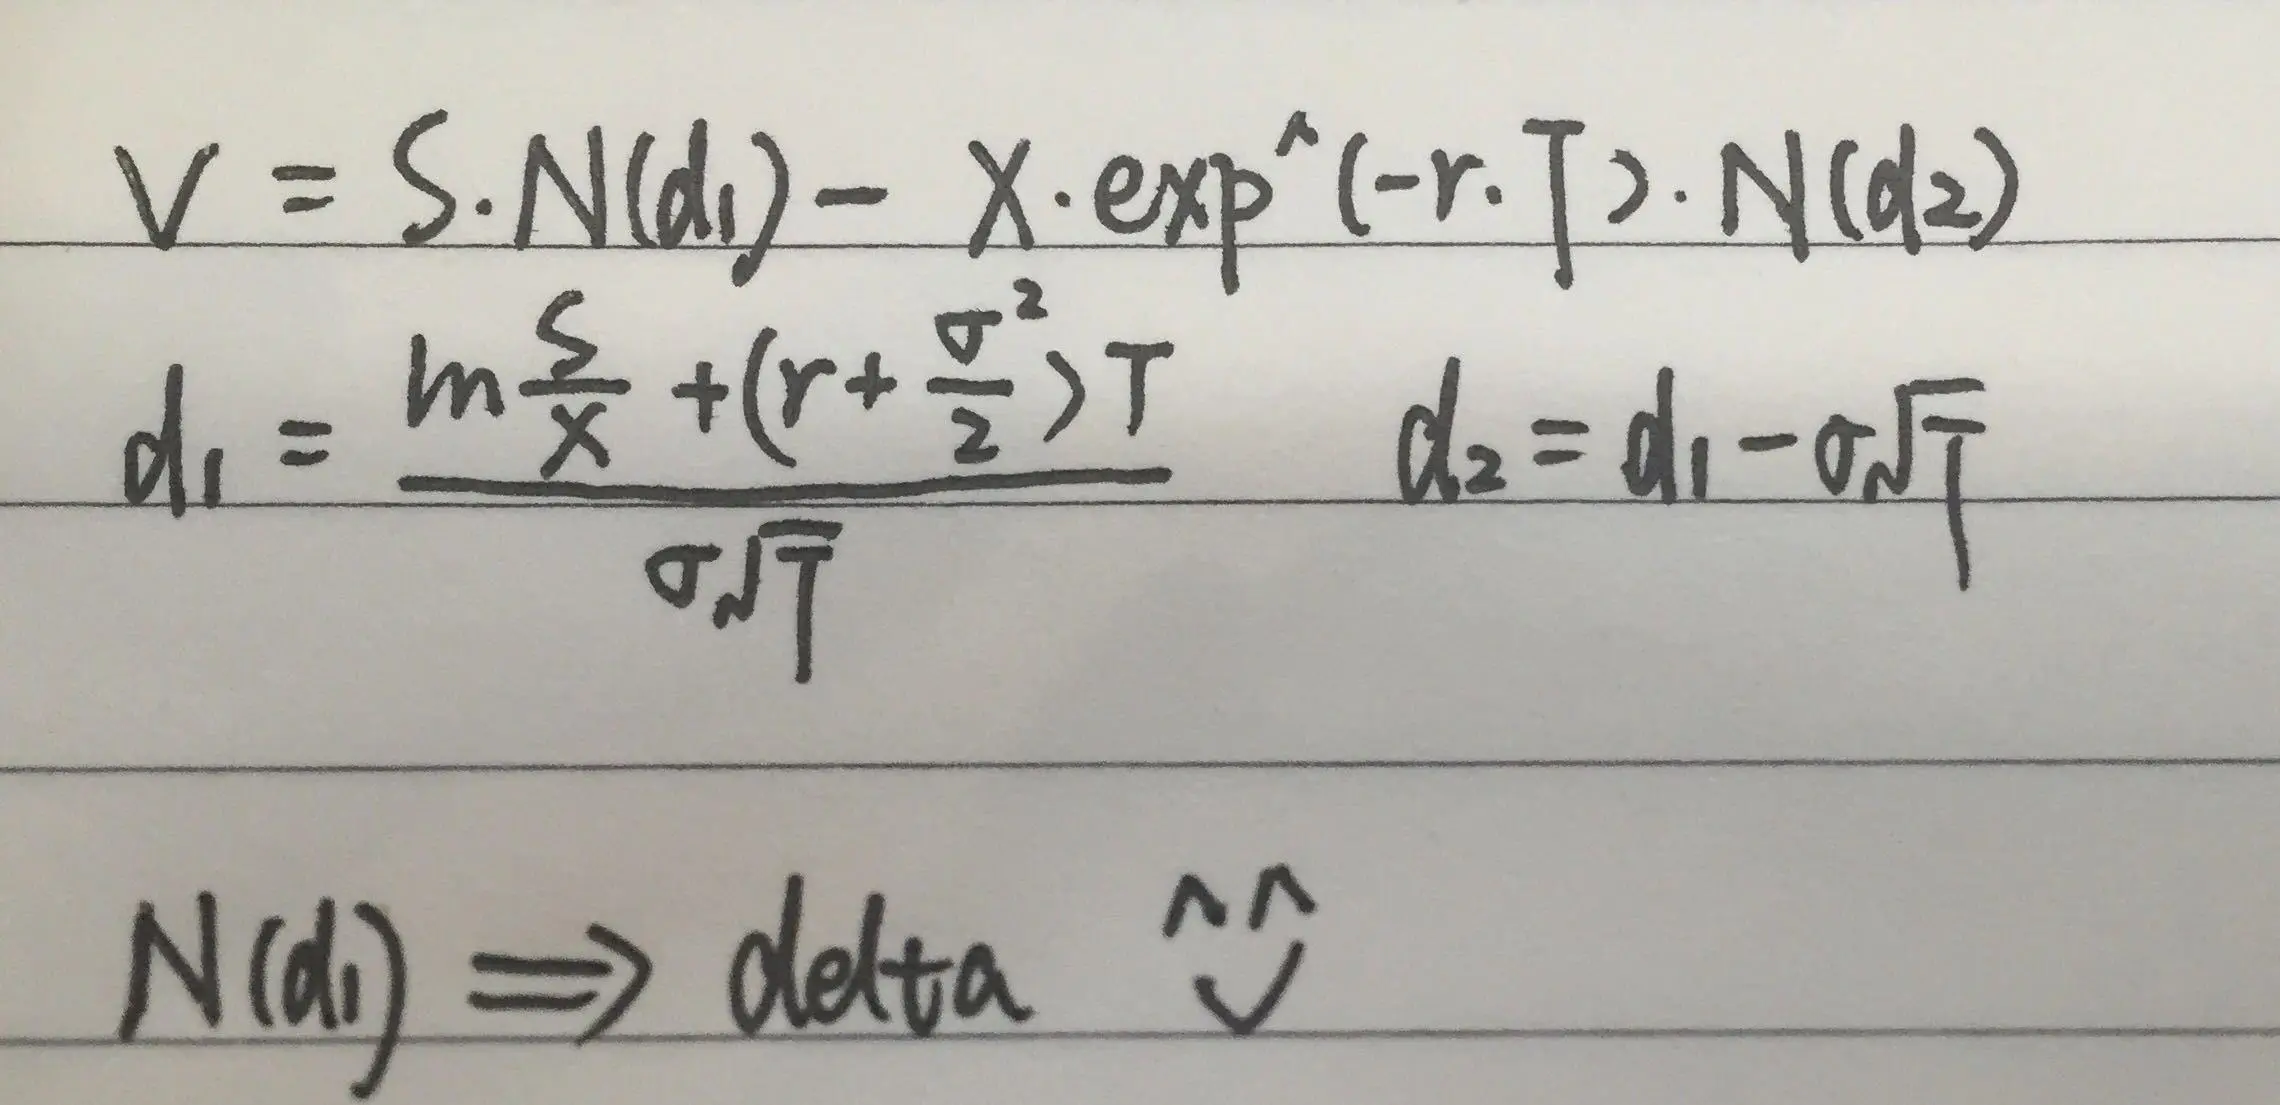 V = S·N(d₁) – X·exp^(-r·T)·N(d₂)
d₁ = (ln S/X + (r + σ²/2)T) / σ√T    d₂ = d₁ – σ√T
N(d₁) ⇒ delta ^^